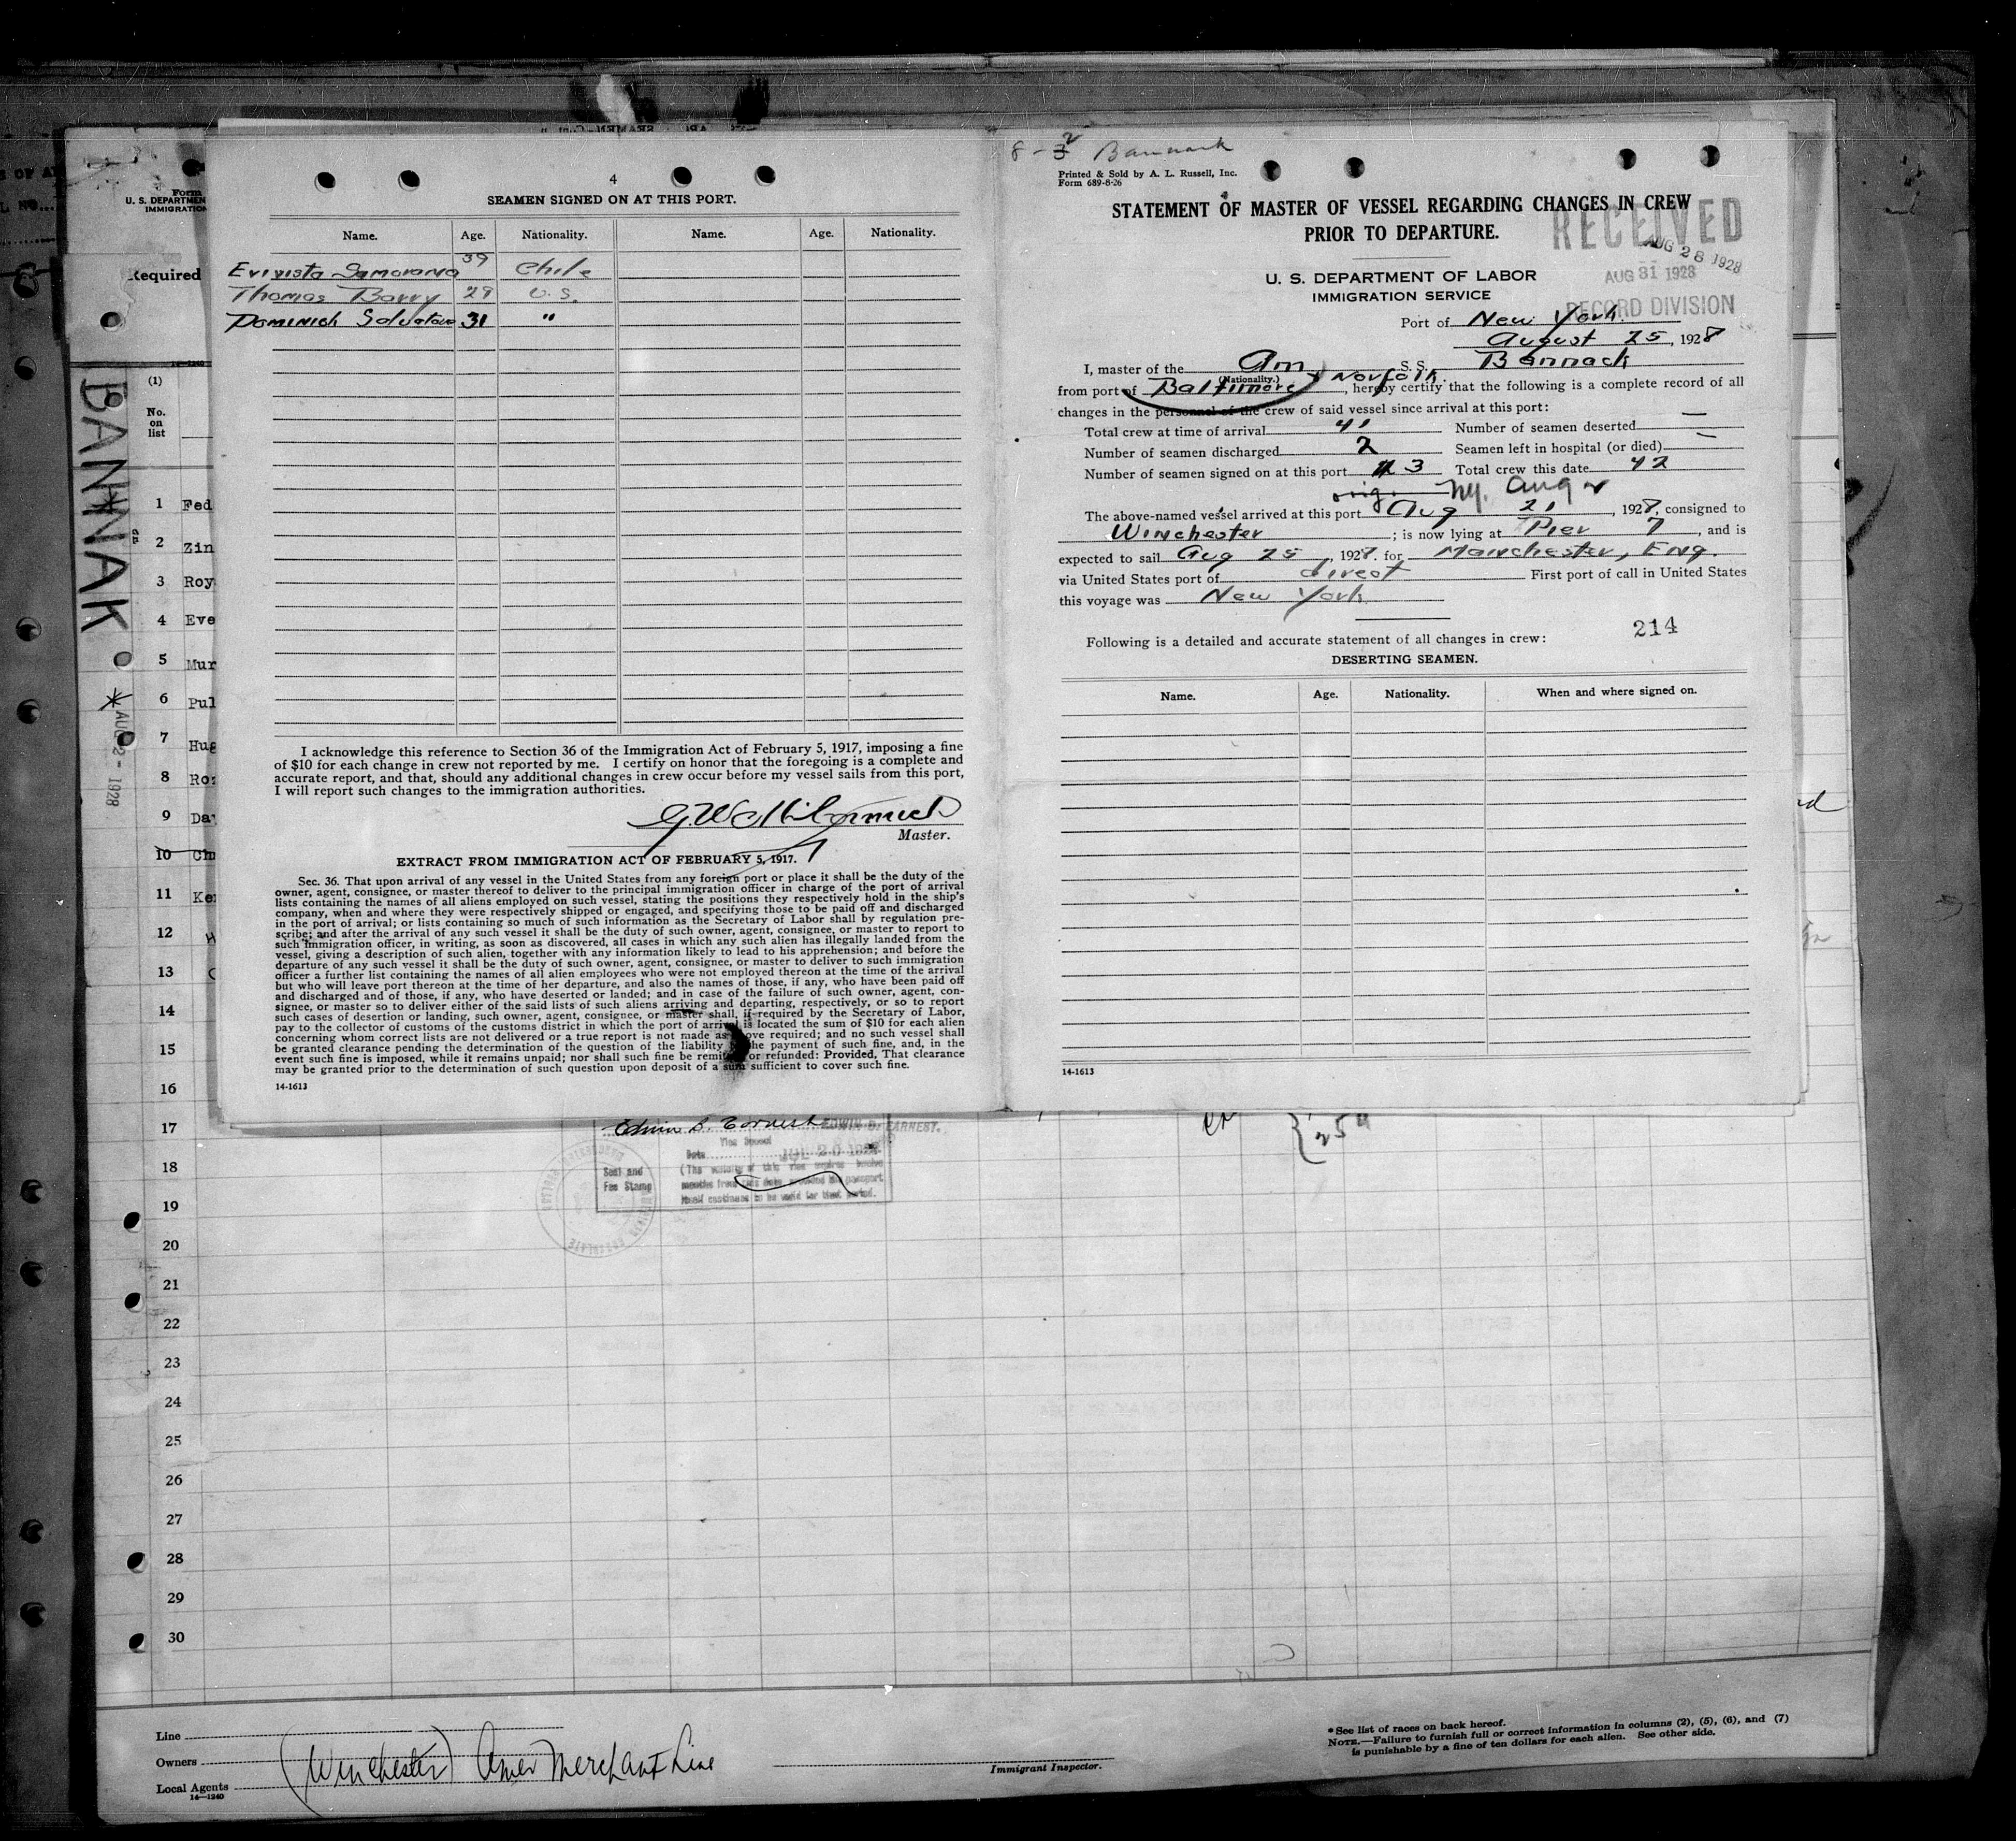 4
SEAMEN SIGNED ON AT THIS PORT.
Name. Age. Nationality. Name. Age. Nationality.
39 Chile
Thomas Barry 29 U. S.
Dominick Salvatore 31 "
I acknowledge this reference to Section 36 of the Immigration Act of February 5, 1917, imposing a fine
of $10 for each change in crew not reported by me. I certify on honor that the foregoing is a complete and
accurate report, and that, should any additional changes in crew occur before my vessel sails from this port,
I will report such changes to the immigration authorities.
Master.
EXTRACT FROM IMMIGRATION ACT OF FEBRUARY 5, 1917.
Sec. 36. That upon arrival of any vessel in the United States from any foreign port or place it shall be the duty of the
owner, agent, consignee, or master thereof to deliver to the principal immigration officer in charge of the port of arrival
lists containing the names of all aliens employed on such vessel, stating the positions they respectively hold in the ship's
company, when and where they were respectively shipped or engaged, and specifying those to be paid off and discharged
in the port of arrival; or lists containing so much of such information as the Secretary of Labor shall by regulation pre-
scribe; and after the arrival of any such vessel it shall be the duty of such owner, agent, consignee, or master to report to
such immigration officer, in writing, as soon as discovered, all cases in which any such alien has illegally landed from the
vessel, giving a description of such alien, together with any information likely to lead to his apprehension; and before the
departure of any such vessel it shall be the duty of such owner, agent, consignee, or master to deliver to such immigration
officer a further list containing the names of all alien employees who were not employed thereon at the time of the arrival
but who will leave port thereon at the time of her departure, and also the names of those, if any, who have been paid off
and discharged and of those, if any, who have deserted or landed; and in case of the failure of such owner, agent, con-
signee, or master so to deliver either of the said lists of such aliens arriving and departing, respectively, or so to report
such cases of desertion or landing, such owner, agent, consignee, or master shall, if required by the Secretary of Labor,
pay to the collector of customs of the customs district in which the port of arrival is located the sum of $10 for each alien
concerning whom correct lists are not delivered or a true report is not made as above required; and no such vessel shall
be granted clearance pending the determination of the question of the liability to the payment of such fine, and, in the
event such fine is imposed, while it remains unpaid; nor shall such fine be remitted or refunded: Provided, That clearance
may be granted prior to the determination of such question upon deposit of a sum sufficient to cover such fine.
14-1613
8 - 2 Bannack
Printed & Sold by A. L. Russell, Inc.
Form 689-8-26
STATEMENT OF MASTER OF VESSEL REGARDING CHANGES IN CREW
PRIOR TO DEPARTURE.
RECEIVED
AUG 28 1928
AUG 31 1928
RECORD DIVISION
U. S. DEPARTMENT OF LABOR
IMMIGRATION SERVICE
Port of New York
August 25, 1928
I, master of the Am S. S. Bannack
(Nationality.)
from port of Baltimore Norfolk, hereby certify that the following is a complete record of all
changes in the personnel of the crew of said vessel since arrival at this port:
Total crew at time of arrival 41 Number of seamen deserted —
Number of seamen discharged 2 Seamen left in hospital (or died) —
Number of seamen signed on at this port 3 Total crew this date 42
orig. NY. Aug 2
The above-named vessel arrived at this port Aug 21, 1928, consigned to
Winchester; is now lying at Pier 7, and is
expected to sail Aug 25, 1928. for Manchester, Eng.
via United States port of direct First port of call in United States
this voyage was New York
214
Following is a detailed and accurate statement of all changes in crew:
DESERTING SEAMEN.
Name. Age. Nationality. When and where signed on.
14-1613
Form
U. S. DEPARTMEN
IMMIGRATION
Required
BANNAK
AUG 2 - 1928
(1)
No.
on
list
1 Fed
2 Zin
3 Roy
4 Eve
5 Mur
6 Pul
7 Hug
8 Ro
9 Da
10 Ch
11 Ke
12
13
14
15
16
17
18
19
20
21
22
23
24
25
26
27
28
29
30
EDWIN B. EARNEST.
Vice Consul
Date JUL 20 1928
Seal and
Fee Stamp
(The validity of this visa expires twelve
months from this date provided the passport
itself continues to be valid for that period.
Line
Owners
Local Agents
14—1240
(Winchester) Amer Merchant Line
Immigrant Inspector.
*See list of races on back hereof.
NOTE.—Failure to furnish full or correct information in columns (2), (5), (6), and (7)
is punishable by a fine of ten dollars for each alien. See other side.